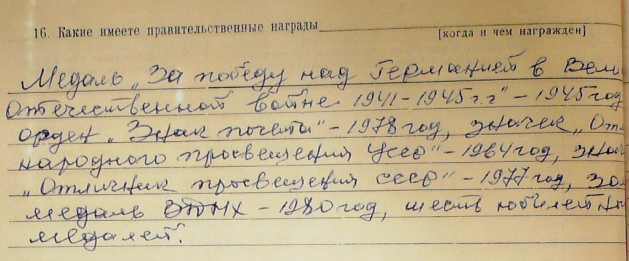 16. Какие имеете правительственные награды
[когда и чем награжден]
Медаль „За победу над Германией в Вели
Отечественной войне 1941-1945 г.г" - 1945 год
орден „Знак почета" - 1978 год, значек „От
народного просвещения УССР" - 1964 год, знач
„Отличник просвещения СССР" - 1977 год, зо
медаль ВДНХ - 1980 год, шесть юбилейны
медалей.